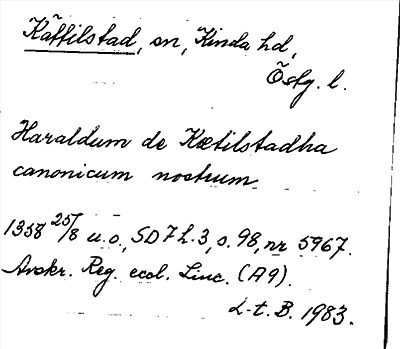 Kättilstad, sn, Kinda hd,
Östg. l.
Haraldum de Kætilstadha
canonicum nostrum
1358 25/8 u.o., SD 7 h. 3, s. 98, nr 5967.
Avskr. Reg. eccl. Linc. (A9).
L-t. B. 1983.